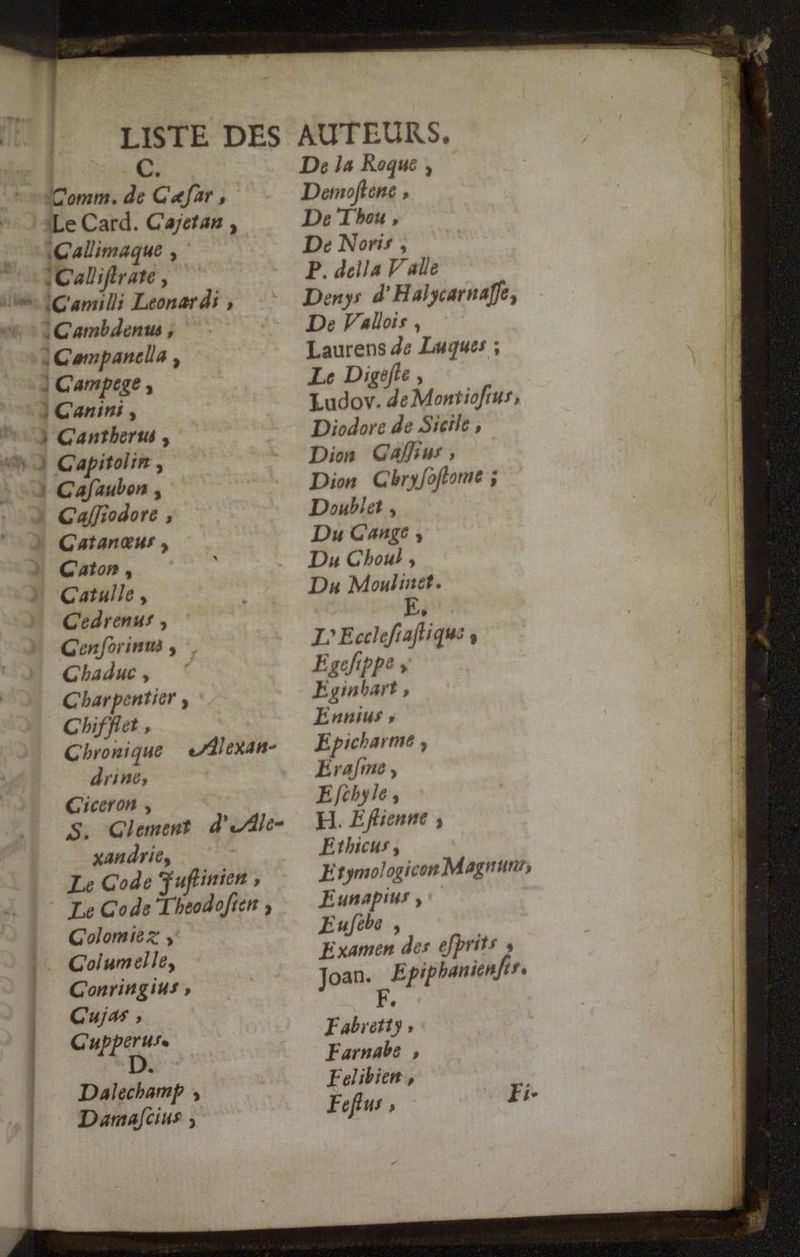 LISTE DES AUTEURS.
C.
Comm. de Cæſar,
Le Card. Cajetan,
Callimaque,
Calliſtrate,
Camilli Leonardi,
Cambdenus,
Campanella,
Campege,
Canini,
Cantherus,
Capitolin,
Caſaubon,
Caſſiodore,
Catanæus,
Caton,
Catulle,
Cedrenus,
Cenſorinus,
Chaduc,
Charpentier,
Chifflet,
Chronique Alexan-
drine,
Ciceron,
S. Clement d'Ale-
xandrie,
Le Code Juſtinien,
Le Code Theodoſien,
Colomiéz,
Columelle,
Conringius,
Cujas,
Cupperus.
D.
Dalechamp,
Damaſcius,
De la Roque,
Demoſtene,
De Thou,
De Noris,
P. della Valle
Denys d'Halycarnaſſe,
De Vallois,
Laurens de Luques;
Le Digeſte,
Ludov. de Montioſius,
Diodore de Sicile,
Dion Caſſius,
Dion Chryſoſtome;
Doublet,
Du Cange,
Du Choul,
Du Moulinet.
E.
L'Eccleſiaſtique,
Egeſippe,
Eginhart,
Ennius,
Epicharme,
Eraſme,
Eſchyle,
H. Eſtienne,
Ethicus,
Etymologicon Magnum,
Eunapius,
Euſebe,
Examen des eſprits,
Joan. Epiphanienſis.
F.
Fabretty,
Farnabe,
Felibien,
Feſtus,
Fi-